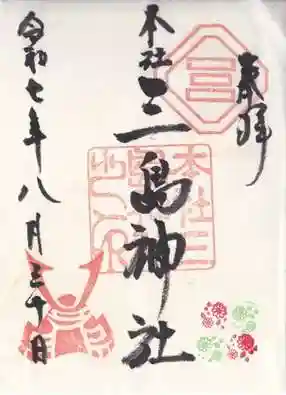 奉拝
本社
三島神社
令和七年八月三十日
三
本社三
之印